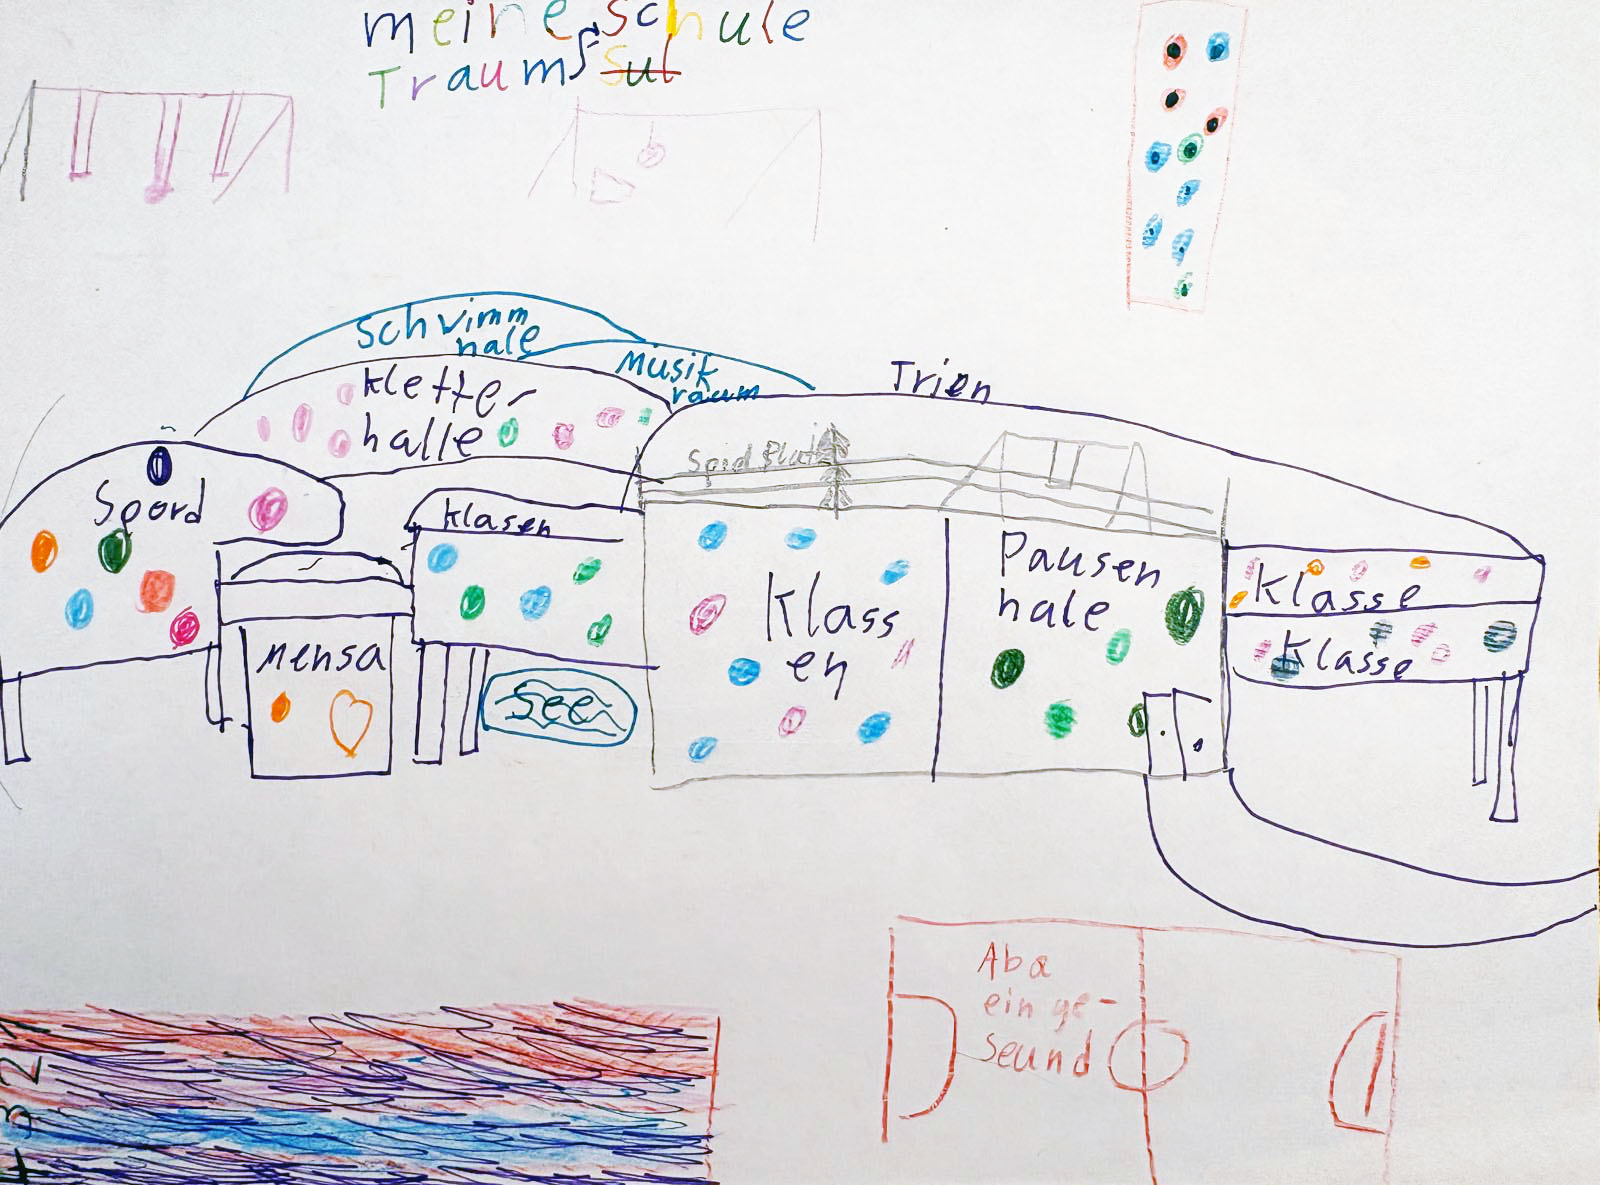 meine schule
Traum Sul
Schwimm
hale
Musik
raum
Trien
Klette-
halle
Spord
Klasen
Spord Platz
Mensa
See
Klass
en
Pausen
hale
Klasse
Klasse
Aba
ein ge-
seund
1
2
3
4